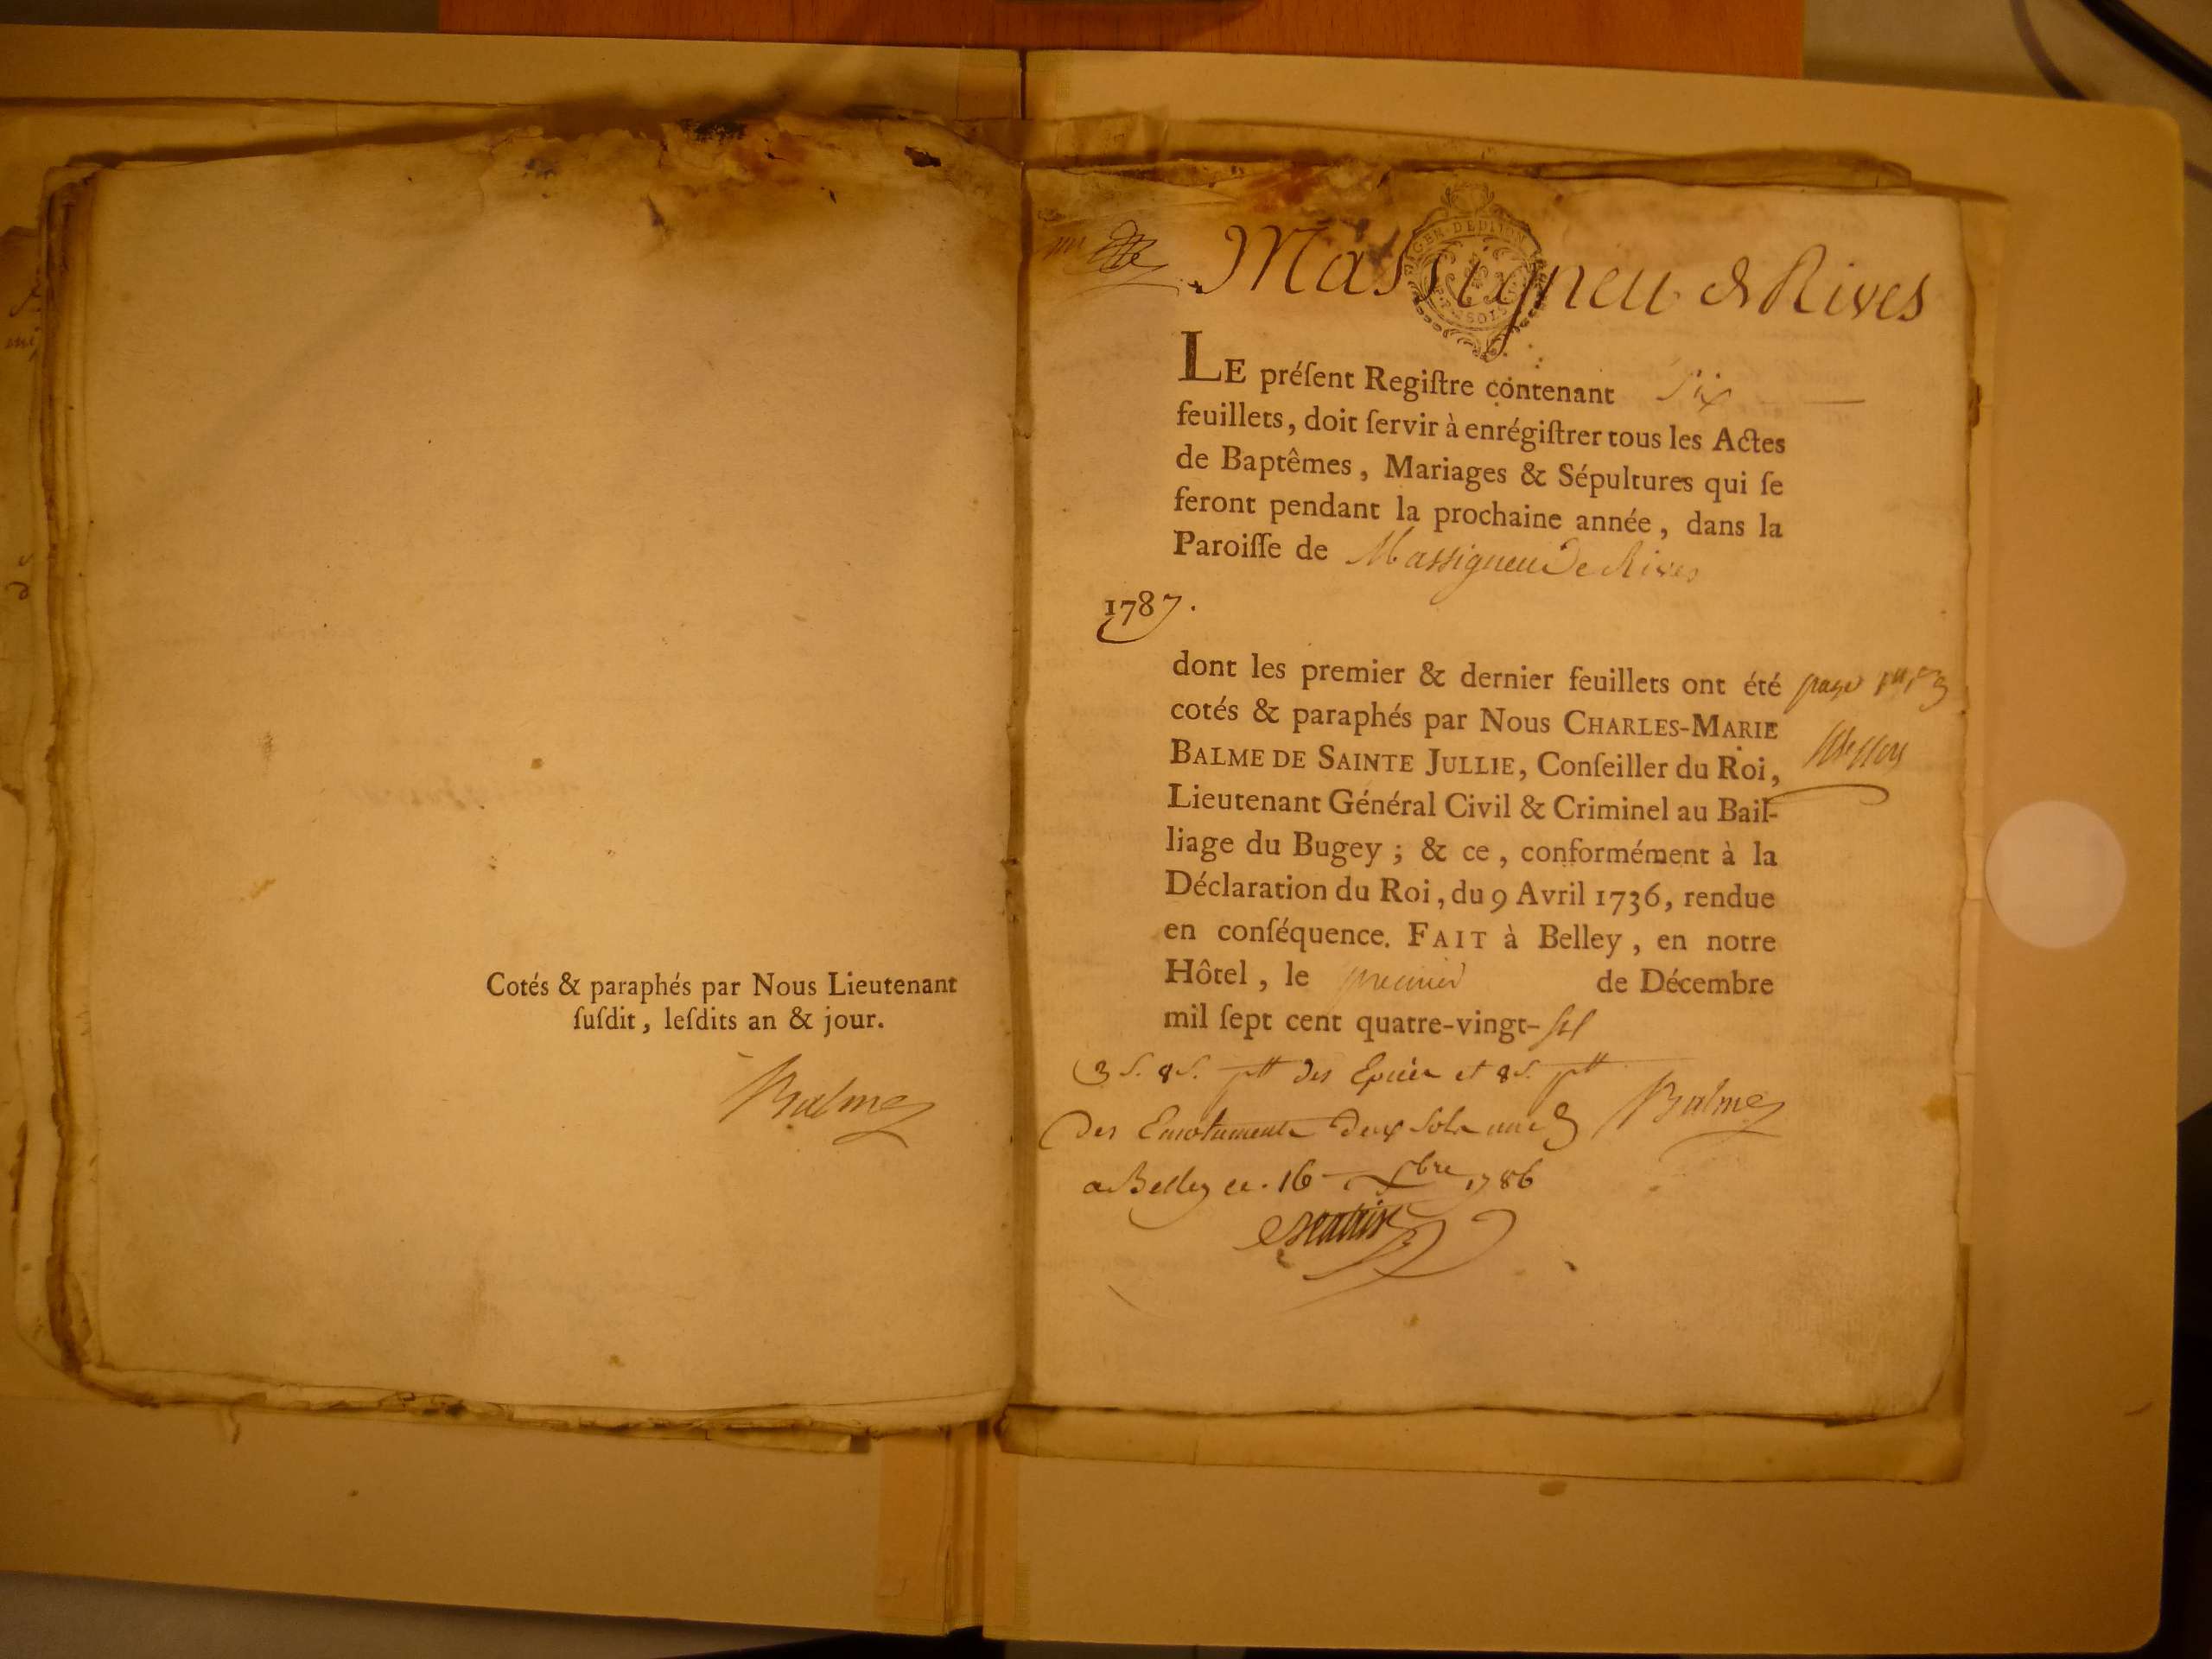 Cotés & paraphés par Nous Lieutenant
ſuſdit, leſdits an & jour.
Balme
Massigneu de Rives
GEN. DE DIJON
LE préſent Regiſtre contenant Six
feuillets, doit ſervir à enrégiſtrer tous les Actes
de Baptêmes, Mariages & Sépultures qui ſe
feront pendant la prochaine année, dans la
Paroiſſe de Massigneu De Rives
1787.
dont les premier & dernier feuillets ont été
cotés & paraphés par Nous CHARLES-MARIE
BALME DE SAINTE JULLIE, Conſeiller du Roi,
Lieutenant Général Civil & Criminel au Bail-
liage du Bugey ; & ce, conformément à la
Déclaration du Roi, du 9 Avril 1736, rendue
en conſéquence. FAIT à Belley, en notre
Hôtel, le premier de Décembre
mil ſept cent quatre-vingt-six
page
3 s. 8 s. ptt des Epices et 8 s. ptt
Des Emoluments Deux sols
Balme
a Belley ce. 16 Xbre 1786